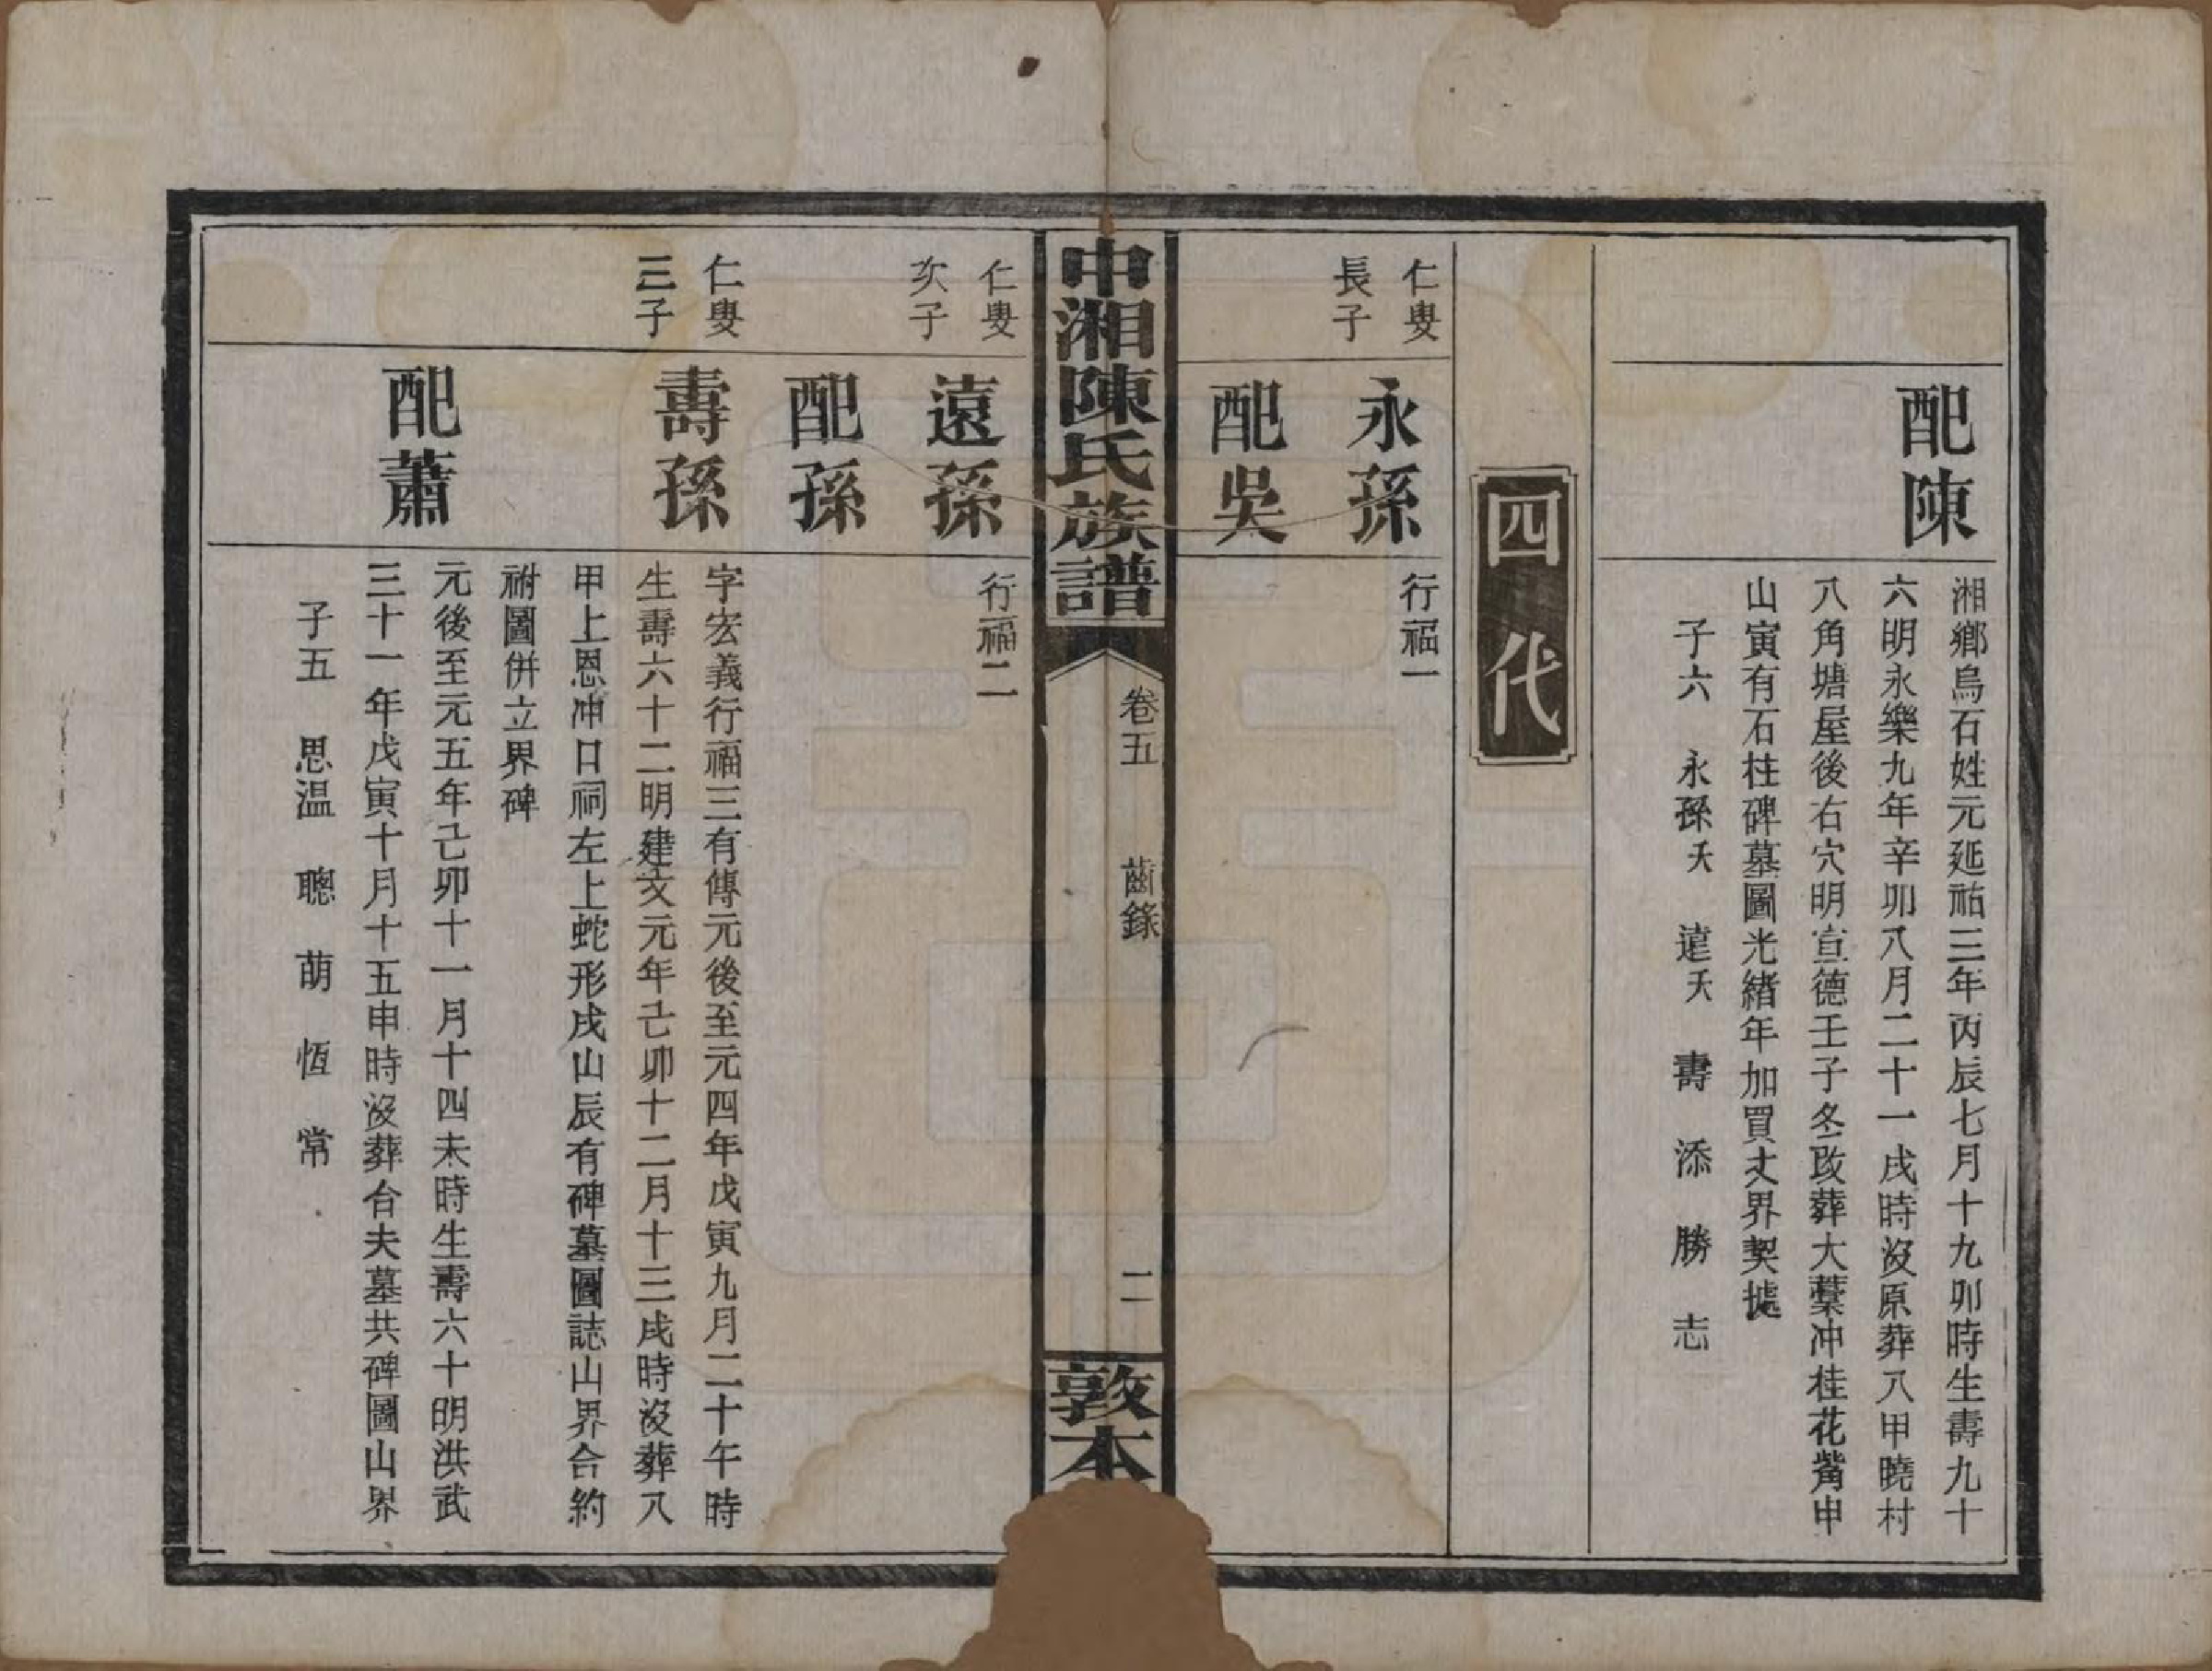 配陳
湘鄉烏石姓元延祐三年丙辰七月十九卯時生壽九十
六明永樂九年辛卯八月二十一戌時沒原葬八甲曉村
八角塘屋後右穴明宣德壬子冬改葬大藁冲桂花觜申
山寅有石柱碑墓圖光緒年加買丈界契據
子六 永孫夭 遠夭 壽 添 勝 志
四代
仁叟
長子
永孫
行福一
配吳
中湘陳氏族譜
卷五 齒錄
二
敦本
仁叟
次子
遠孫
行福二
配孫
仁叟
三子
壽孫
字宏義行福三有傳元後至元四年戊寅九月二十午時
生壽六十二明建文元年己卯十二月十三戌時沒葬八
甲上恩冲口祠左上蛇形戌山辰有碑墓圖誌山界合約
祔圖併立界碑
配蕭
元後至元五年己卯十一月十四未時生壽六十明洪武
三十一年戊寅十月十五申時沒葬合夫墓共碑圖山界
子五 思溫 聰 萌 恆 常